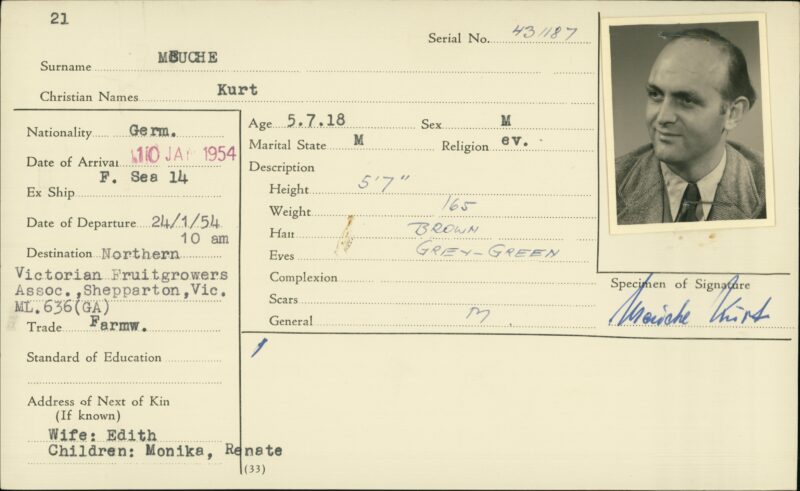 21
Serial No. 431187
Surname MEUCHE
Christian Names Kurt
Nationality Germ.
Date of Arrival 10 JAN 1954
Ex Ship F. Sea 14
Date of Departure 24/1/54
10 am
Destination Northern
Victorian Fruitgrowers
Assoc., Shepparton, Vic.
ML.636(GA)
Trade Farmw.
Standard of Education
Address of Next of Kin
(If known)
Wife: Edith
Children: Monika, Renate
(33)
Age 5.7.18 Sex M
Marital State M Religion ev.
Description
Height 5'7"
Weight 165
Hair BROWN
Eyes GREY-GREEN
Complexion
Scars
General M
Specimen of Signature
Meuche Kurt